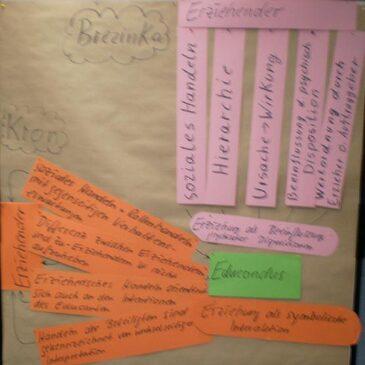 Brezinka
Erziehender
soziales Handeln
Hierarchie
Ursache → Wirkung
Beeinflussung d. psychisch.
Disposition
Wertordnung durch
Erzieher o. Auftraggeber
Erziehung als Beeinflussung
psychischer Dispositionen
Educandus
Kron
Erziehender
soziales Handeln = Rollenhandeln
mit gegenseitigen Verhaltens-
erwartungen
Differenz zwischen Erziehenden
und zu Erziehenden ist nicht
aufzuheben
Erzieherisches Handeln orientiert
sich auch an den Intentionen
des Educanden
Handeln der Beteiligten sind
gekennzeichnet von wechselseitiger
Interpretation
Erziehung als symbolische
Interaktion